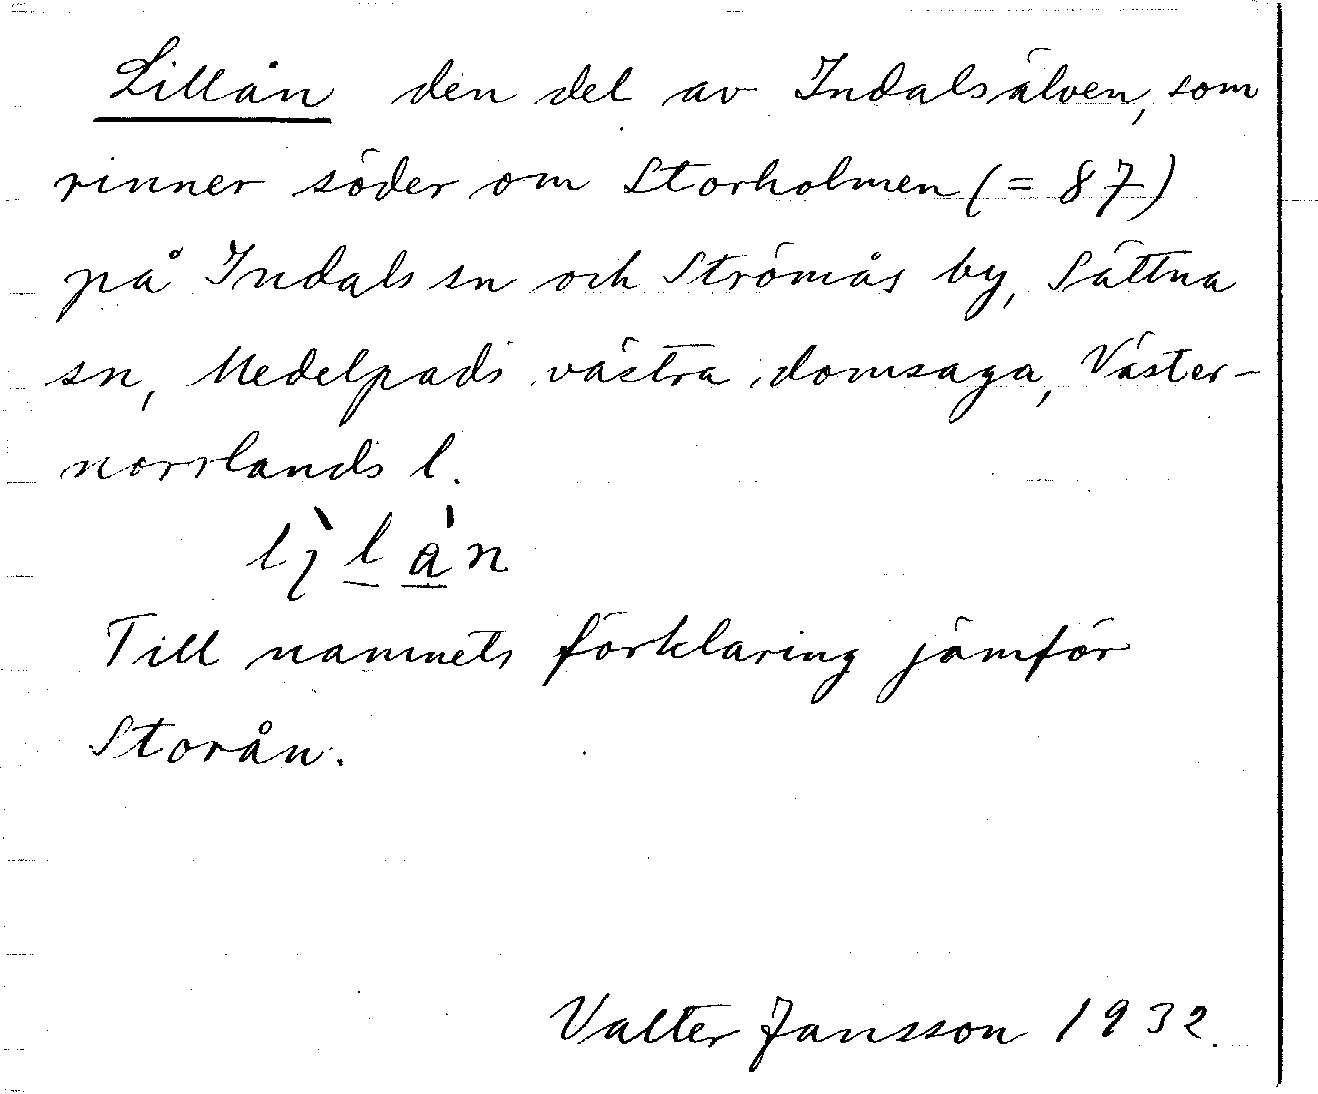 Lillån den del av Indalsälven, som
rinner söder om Storholmen (= 87)
på Indals sn och Strömås by, Sättna
sn, Medelpads västra domsaga, Väster-
norrlands l.
lı̀lån
Till namnets förklaring jämför
Storån.
Valter Jansson 1932.